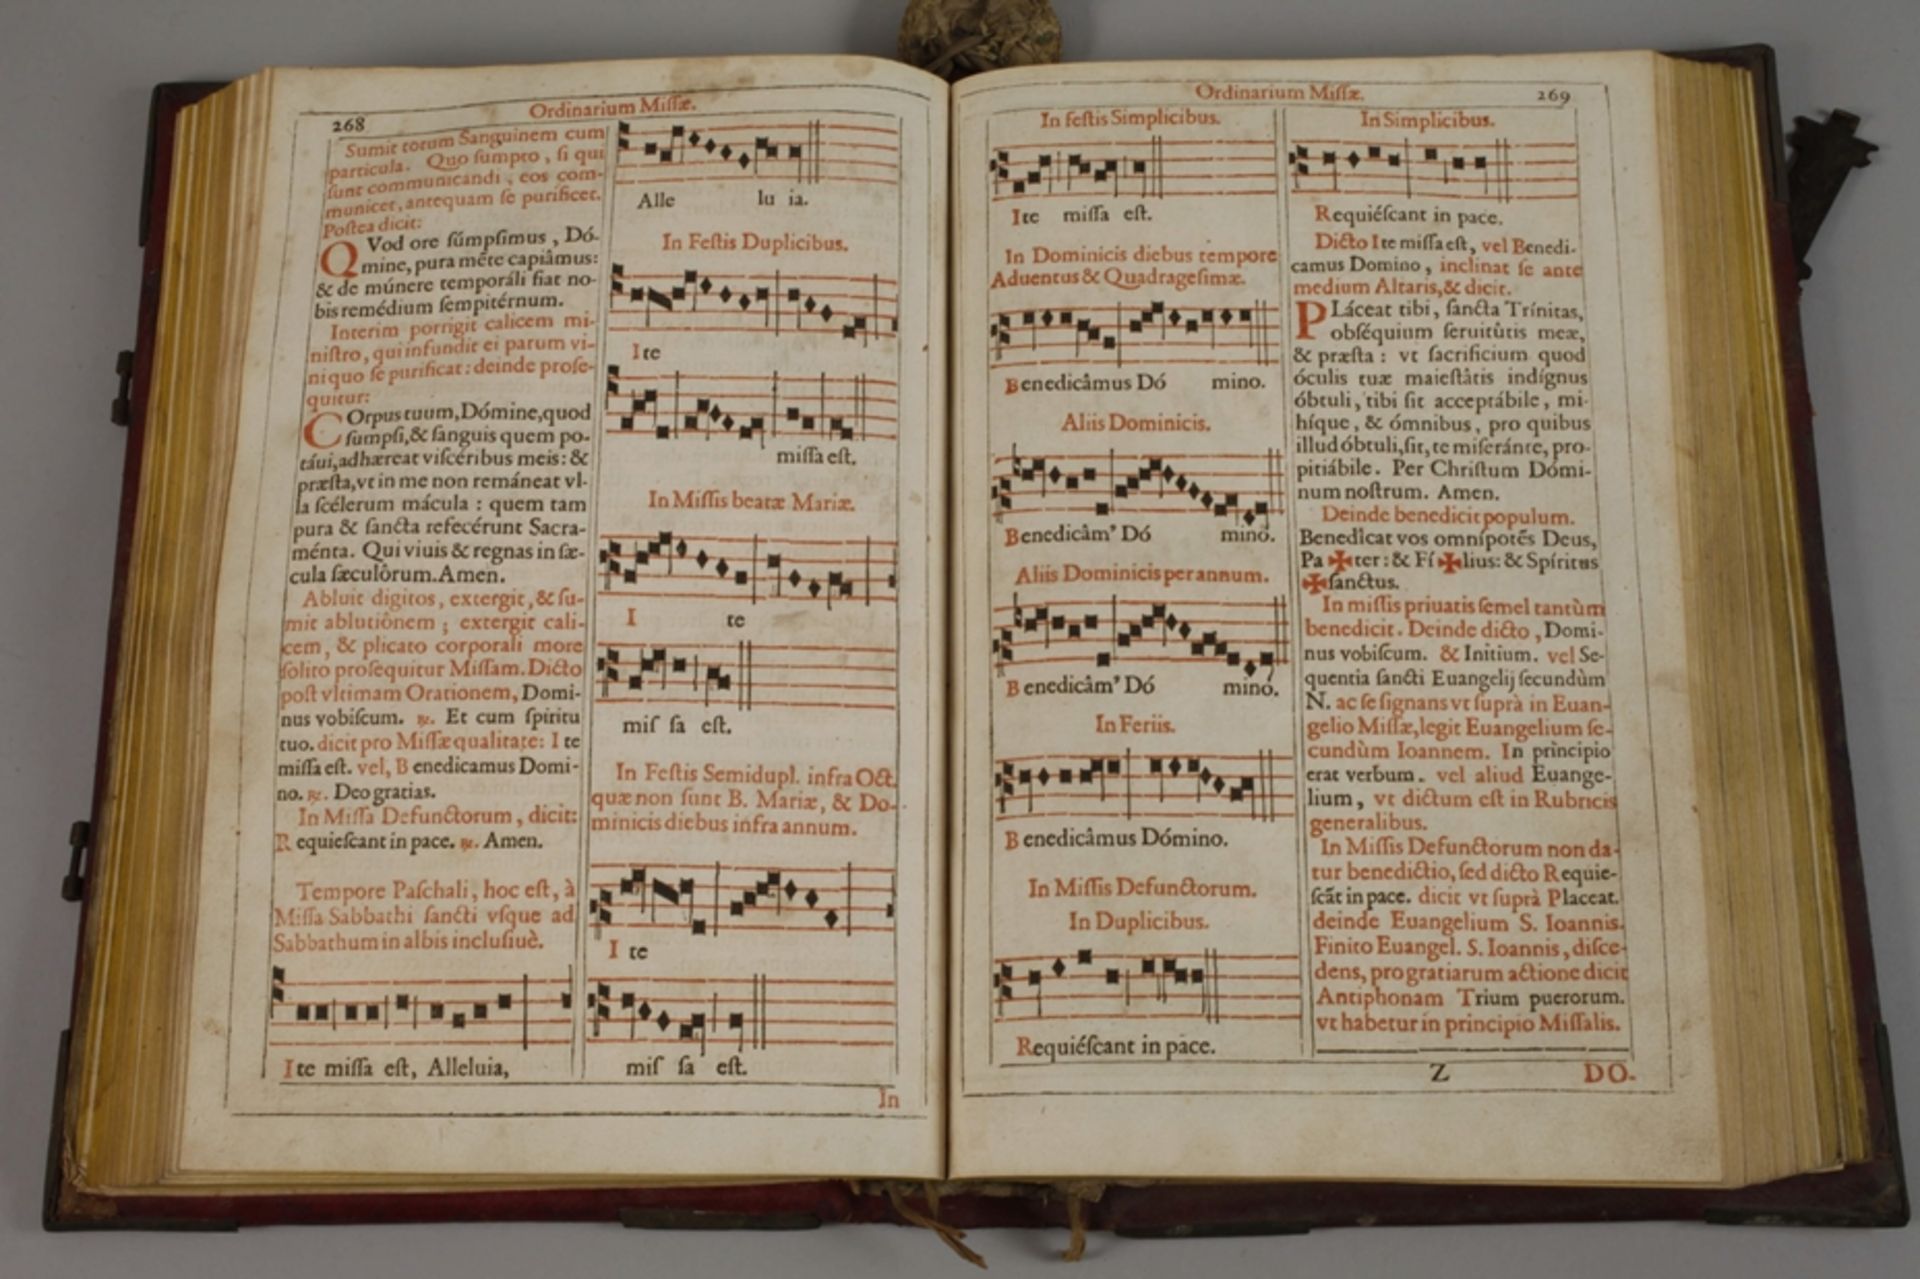 268
Ordinarium Miſſæ.
Sumit totum Sanguinem cum
particula. Quo ſumpto, ſi qui
ſunt communicandi, eos com-
municet, antequam ſe purificet.
Poſtea dicit:
QVod ore ſúmpſimus, Dó-
mine, pura mẽte capiâmus:
& de múnere temporáli fiat no-
bis remédium ſempitérnum.
Interim porrigit calicem mi-
niſtro, qui infundit ei parum vi-
ni quo ſe purificat: deinde proſe-
quitur:
COrpus tuum, Dómine, quod
ſumpſi, & ſanguis quem po-
táui, adhæreat viſcéribus meis: &
præſta, vt in me non remáneat vl-
la ſcélerum mácula: quem tam
pura & ſancta refecérunt Sacra-
ménta. Qui viuis & regnas in ſæ-
cula ſæculôrum. Amen.
Abluit digitos, extergit, & ſu-
mit ablutiônem; extergit cali-
cem, & plicato corporali more
ſolito proſequitur Miſſam. Dicto
poſt vltimam Orationem, Domi-
nus vobiſcum. ℟. Et cum ſpiritu
tuo. dicit pro Miſſæ qualitate: I te
miſſa eſt. vel, B enedicamus Domi-
no. ℟. Deo gratias.
In Miſſa Defunctorum, dicit:
R equieſcant in pace. ℟. Amen.
Tempore Paſchali, hoc eſt, à
Miſſa Sabbathi ſancti vſque ad
Sabbathum in albis incluſiuè.
I te miſſa eſt, Alleluia,
Alle lu ia.
In Feſtis Duplicibus.
I te
miſſa eſt.
In Miſſis beatæ Mariæ.
I te
miſ ſa eſt.
In Feſtis Semidupl. infra Oct.
quæ non ſunt B. Mariæ, & Do-
minicis diebus infra annum.
I te
miſ ſa eſt.
In
Ordinarium Miſſæ.
269
In feſtis Simplicibus.
I te miſſa eſt.
In Dominicis diebus tempore
Aduentus & Quadrageſimæ.
B enedicâmus Dó mino.
Aliis Dominicis.
B enedicâm' Dó mino.
Aliis Dominicis per annum.
B enedicâm' Dó mino.
In Feriis.
B enedicâmus Dómino.
In Miſſis Defunctorum.
In Duplicibus.
Requiéſcant in pace.
In Simplicibus.
Requiéſcant in pace.
Dicto I te miſſa eſt, vel Benedi-
camus Domino, inclinat ſe ante
medium Altaris, & dicit.
PLáceat tibi, ſancta Trínitas,
obſéquium ſeruitûtis meæ,
& præſta: vt ſacrificium quod
óculis tuæ maieſtâtis indígnus
óbtuli, tibi ſit acceptábile, mi-
híque, & ómnibus, pro quibus
illud óbtuli, ſit, te miſeránte, pro-
pitiábile. Per Chriſtum Dómi-
num noſtrum. Amen.
Deinde benedicit populum.
Benedîcat vos omnípotẽs Deus,
Pa ✠ ter: & Fí ✠ lius: & Spíritus
✠ ſanctus.
In miſſis priuatis ſemel tantùm
benedicit. Deinde dicto, Domi-
nus vobiſcum. & Initium. vel Se-
quentia ſancti Euangelij ſecundùm
N. ac ſe ſignans vt ſuprà in Euan-
gelio Miſſæ, legit Euangelium ſe-
cundùm Ioannem. In principio
erat verbum. vel aliud Euange-
lium, vt dictum eſt in Rubricis
generalibus.
In Miſſis Defunctorum non da-
tur benedictio, ſed dicto Requie-
ſcãt in pace. dicit vt ſuprà Placeat.
deinde Euangelium S. Ioannis.
Finito Euangel. S. Ioannis, diſce-
dens, pro gratiarum actione dicit
Antiphonam Trium puerorum.
vt habetur in principio Miſſalis.
Z
DO-